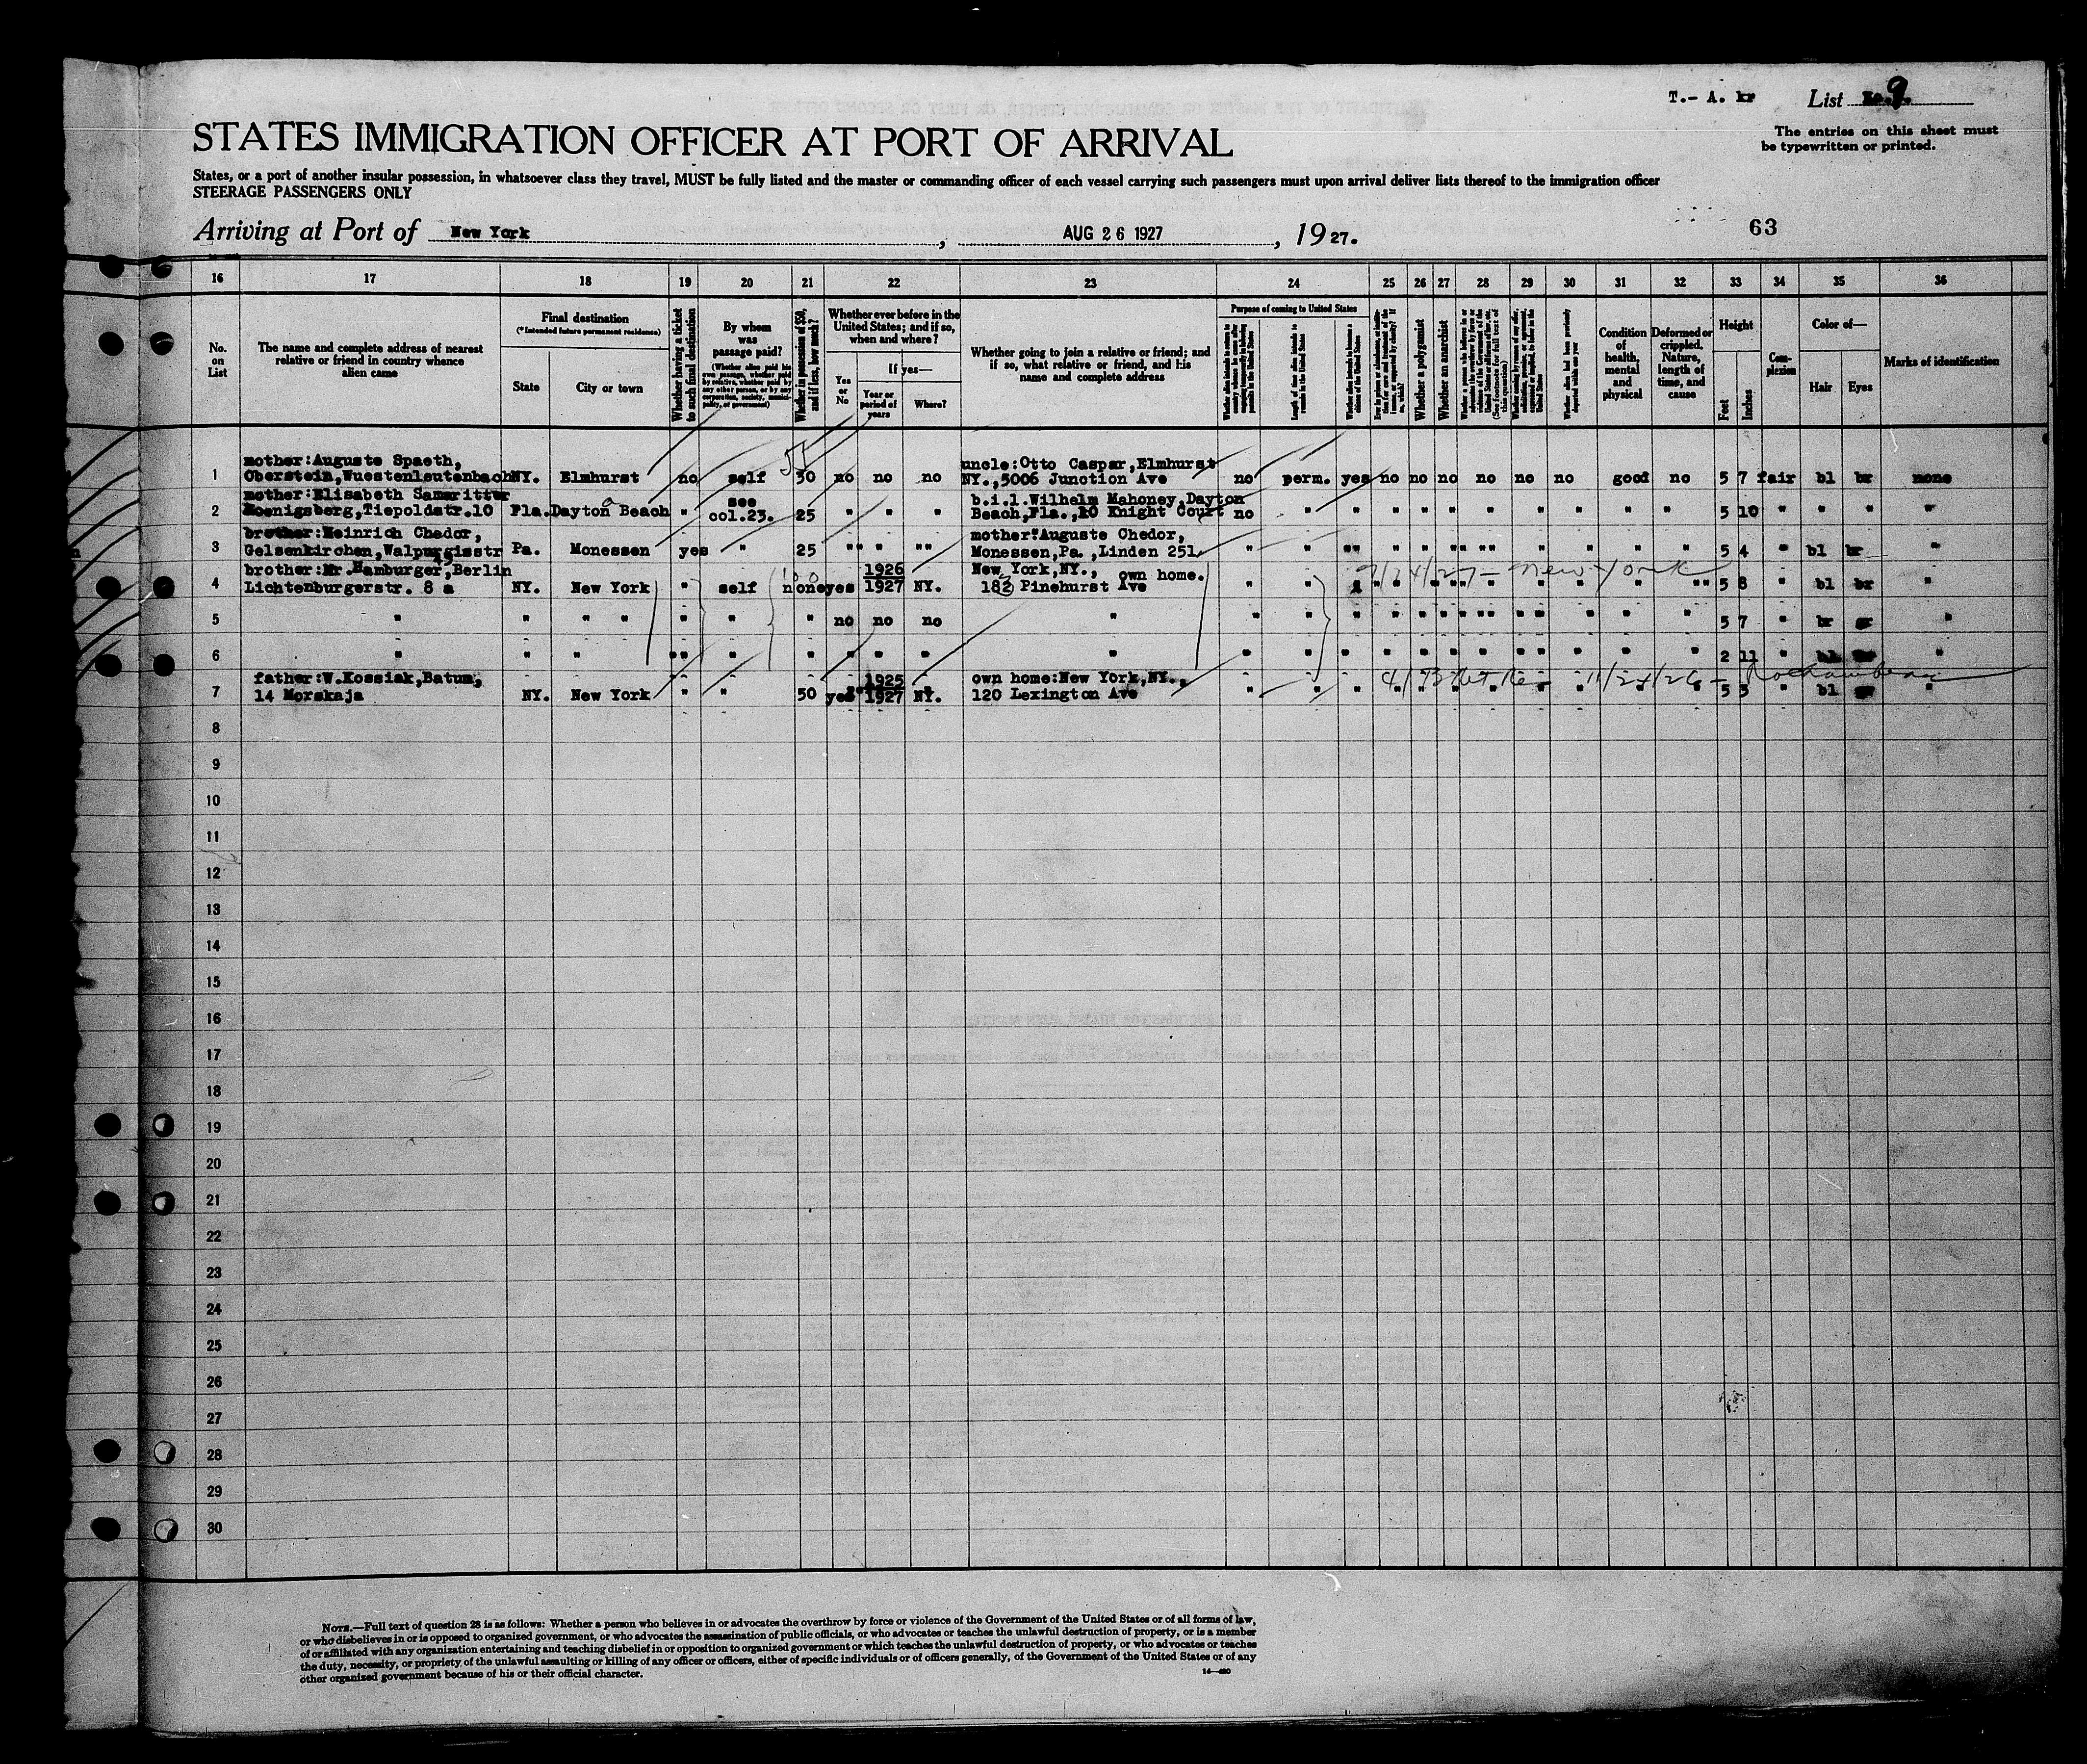 T.- A. kr
List No. 9
STATES IMMIGRATION OFFICER AT PORT OF ARRIVAL
The entries on this sheet must
be typewritten or printed.
States, or a port of another insular possession, in whatsoever class they travel, MUST be fully listed and the master or commanding officer of each vessel carrying such passengers must upon arrival deliver lists thereof to the immigration officer
STEERAGE PASSENGERS ONLY
Arriving at Port of New York, AUG 26 1927, 1927.
63
16 17 18 19 20 21 22 23 24 25 26 27 28 29 30 31 32 33 34 35 36
No. on List
The name and complete address of nearest relative or friend in country whence alien came
Final destination
(*Intended future permanent residence)
State
City or town
Whether having a ticket to such final destination
By whom was passage paid?
(Whether alien paid his own passage, whether paid by relative, whether paid by any other person, or by any corporation, society, municipality, or government)
Whether in possession of $50, and if less, how much?
Whether ever before in the United States; and if so, when and where?
Yes or No
If yes—
Year or period of years
Where?
Whether going to join a relative or friend; and if so, what relative or friend, and his name and complete address
Purpose of coming to United States
Length of time alien intends to remain in the United States
Whether a polygamist
Whether an anarchist
Condition of health, mental and physical
Deformed or crippled. Nature, length of time, and cause
Height
Feet
Inches
Complexion
Color of—
Hair
Eyes
Marks of identification
mother:Auguste Spaeth,
uncle:Otto Caspar,Elmhurst
1 Oberstein,Wuestenleutenbach NY. Elmhurst no self 50 no no no NY.,5006 Junction Ave no perm. yes no no no no no no good no 5 7 fair bl br none
mother:Elisabeth Samaritter see b.i.l.Wilhelm Mahoney,Dayton
2 Koenigsberg,Tiepoldstr.10 Fla. Dayton Beach " col.23. 25 " " " Beach,Fla.,10 Knight Court no " " " " " " " " " " 5 10 " " " "
brother:Heinrich Chedor, mother:Auguste Chedor,
3 Gelsenkirchen,Walpurgisstr Pa. Monessen yes " 25 " " " Monessen,Pa.,Linden 251 " " " " " " " " " " " 5 4 " bl br "
brother:Mr.Hamburger,Berlin 100 1926 New York,NY., own home. 7/24/27 - New York
4 Lichtenburgerstr. 8 a NY. New York " self none yes 1927 NY. 182 Pinehurst Ave " " " " " " " " " " 5 8 " bl br
5 " " " " " " " no no no " " " " " " " " " " " " 5 7 " br "
6 " " " " " " " " " " " " " " " " " " " " 2 11 " "
father:W.Kossiak,Batum, 1925 own home:New York,NY., 11/24/26 - Rochambeau
7 14 Morskaja NY. New York " " 50 yes 1927 NY. 120 Lexington Ave " " " " " " " " " " " 5 3 " bl "
8
9
10
11
12
13
14
15
16
17
18
19
20
21
22
23
24
25
26
27
28
29
30
NOTE.—Full text of question 28 is as follows: Whether a person who believes in or advocates the overthrow by force or violence of the Government of the United States or of all forms of law,
or who disbelieves in or is opposed to organized government, or who advocates the assassination of public officials, or who advocates or teaches the unlawful destruction of property, or is a member
of or affiliated with any organization entertaining and teaching disbelief in or opposition to organized government or which teaches the unlawful destruction of property, or who advocates or teaches
the duty, necessity, or propriety of the unlawful assaulting or killing of any officer or officers, either of specific individuals or of officers generally, of the Government of the United States or of any
other organized government because of his or their official character.
14—480